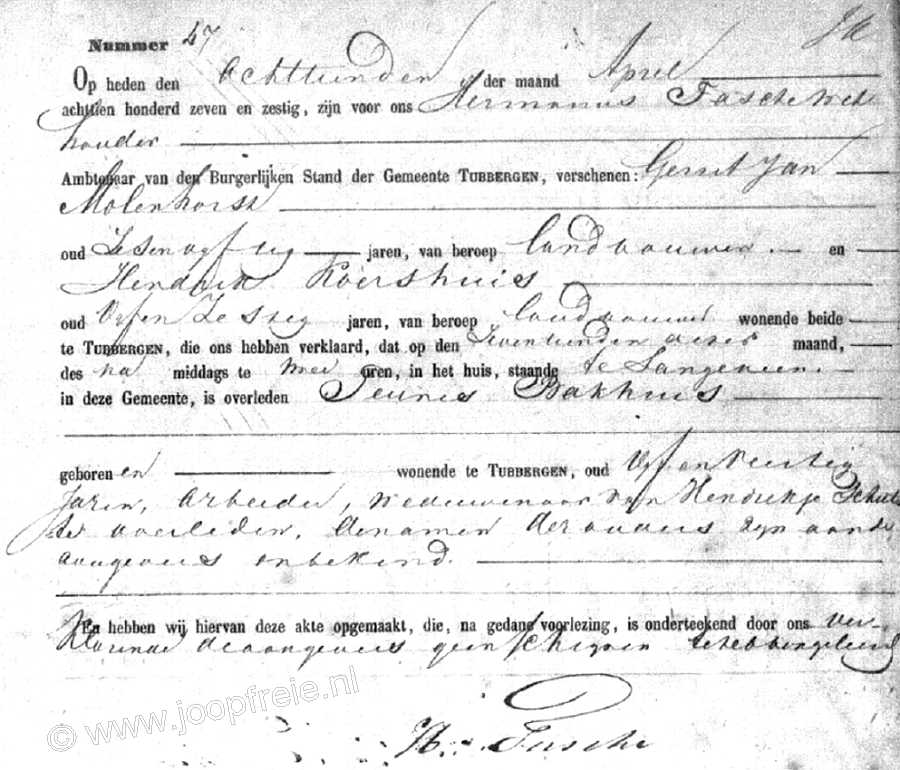 Nummer 47
Op heden den Achttienden der maand April
achttien honderd zeven en zestig, zijn voor ons Hermannus Fasche Weth
houder
Ambtenaar van den Burgerlijken Stand der Gemeente TUBBERGEN, verschenen: Gerrit Jan
Molenhorst
oud Zesenvyftig jaren, van beroep landbouwer en
Hendrik Roershuis
oud Vyfen Zestig jaren, van beroep landbouwer wonende beide
te TUBBERGEN, die ons hebben verklaard, dat op den Zeventienden dezer maand,
des na middags te twee uren, in het huis, staande te Langeveen
in deze Gemeente, is overleden Teunis Bakhuis
geboren en wonende te TUBBERGEN, oud Vyf en Veertig
Jaren, Arbeider, Weduwenaar van Hendrikje Schut
overleden, denamen der ouders zyn aande
aangevers onbekend.
En hebben wij hiervan deze akte opgemaakt, die, na gedane voorlezing, is onderteekend door ons ver-
klarende deaangevers geen schryven te hebben geleerd
H. Fasche
© www.joopfreie.nl